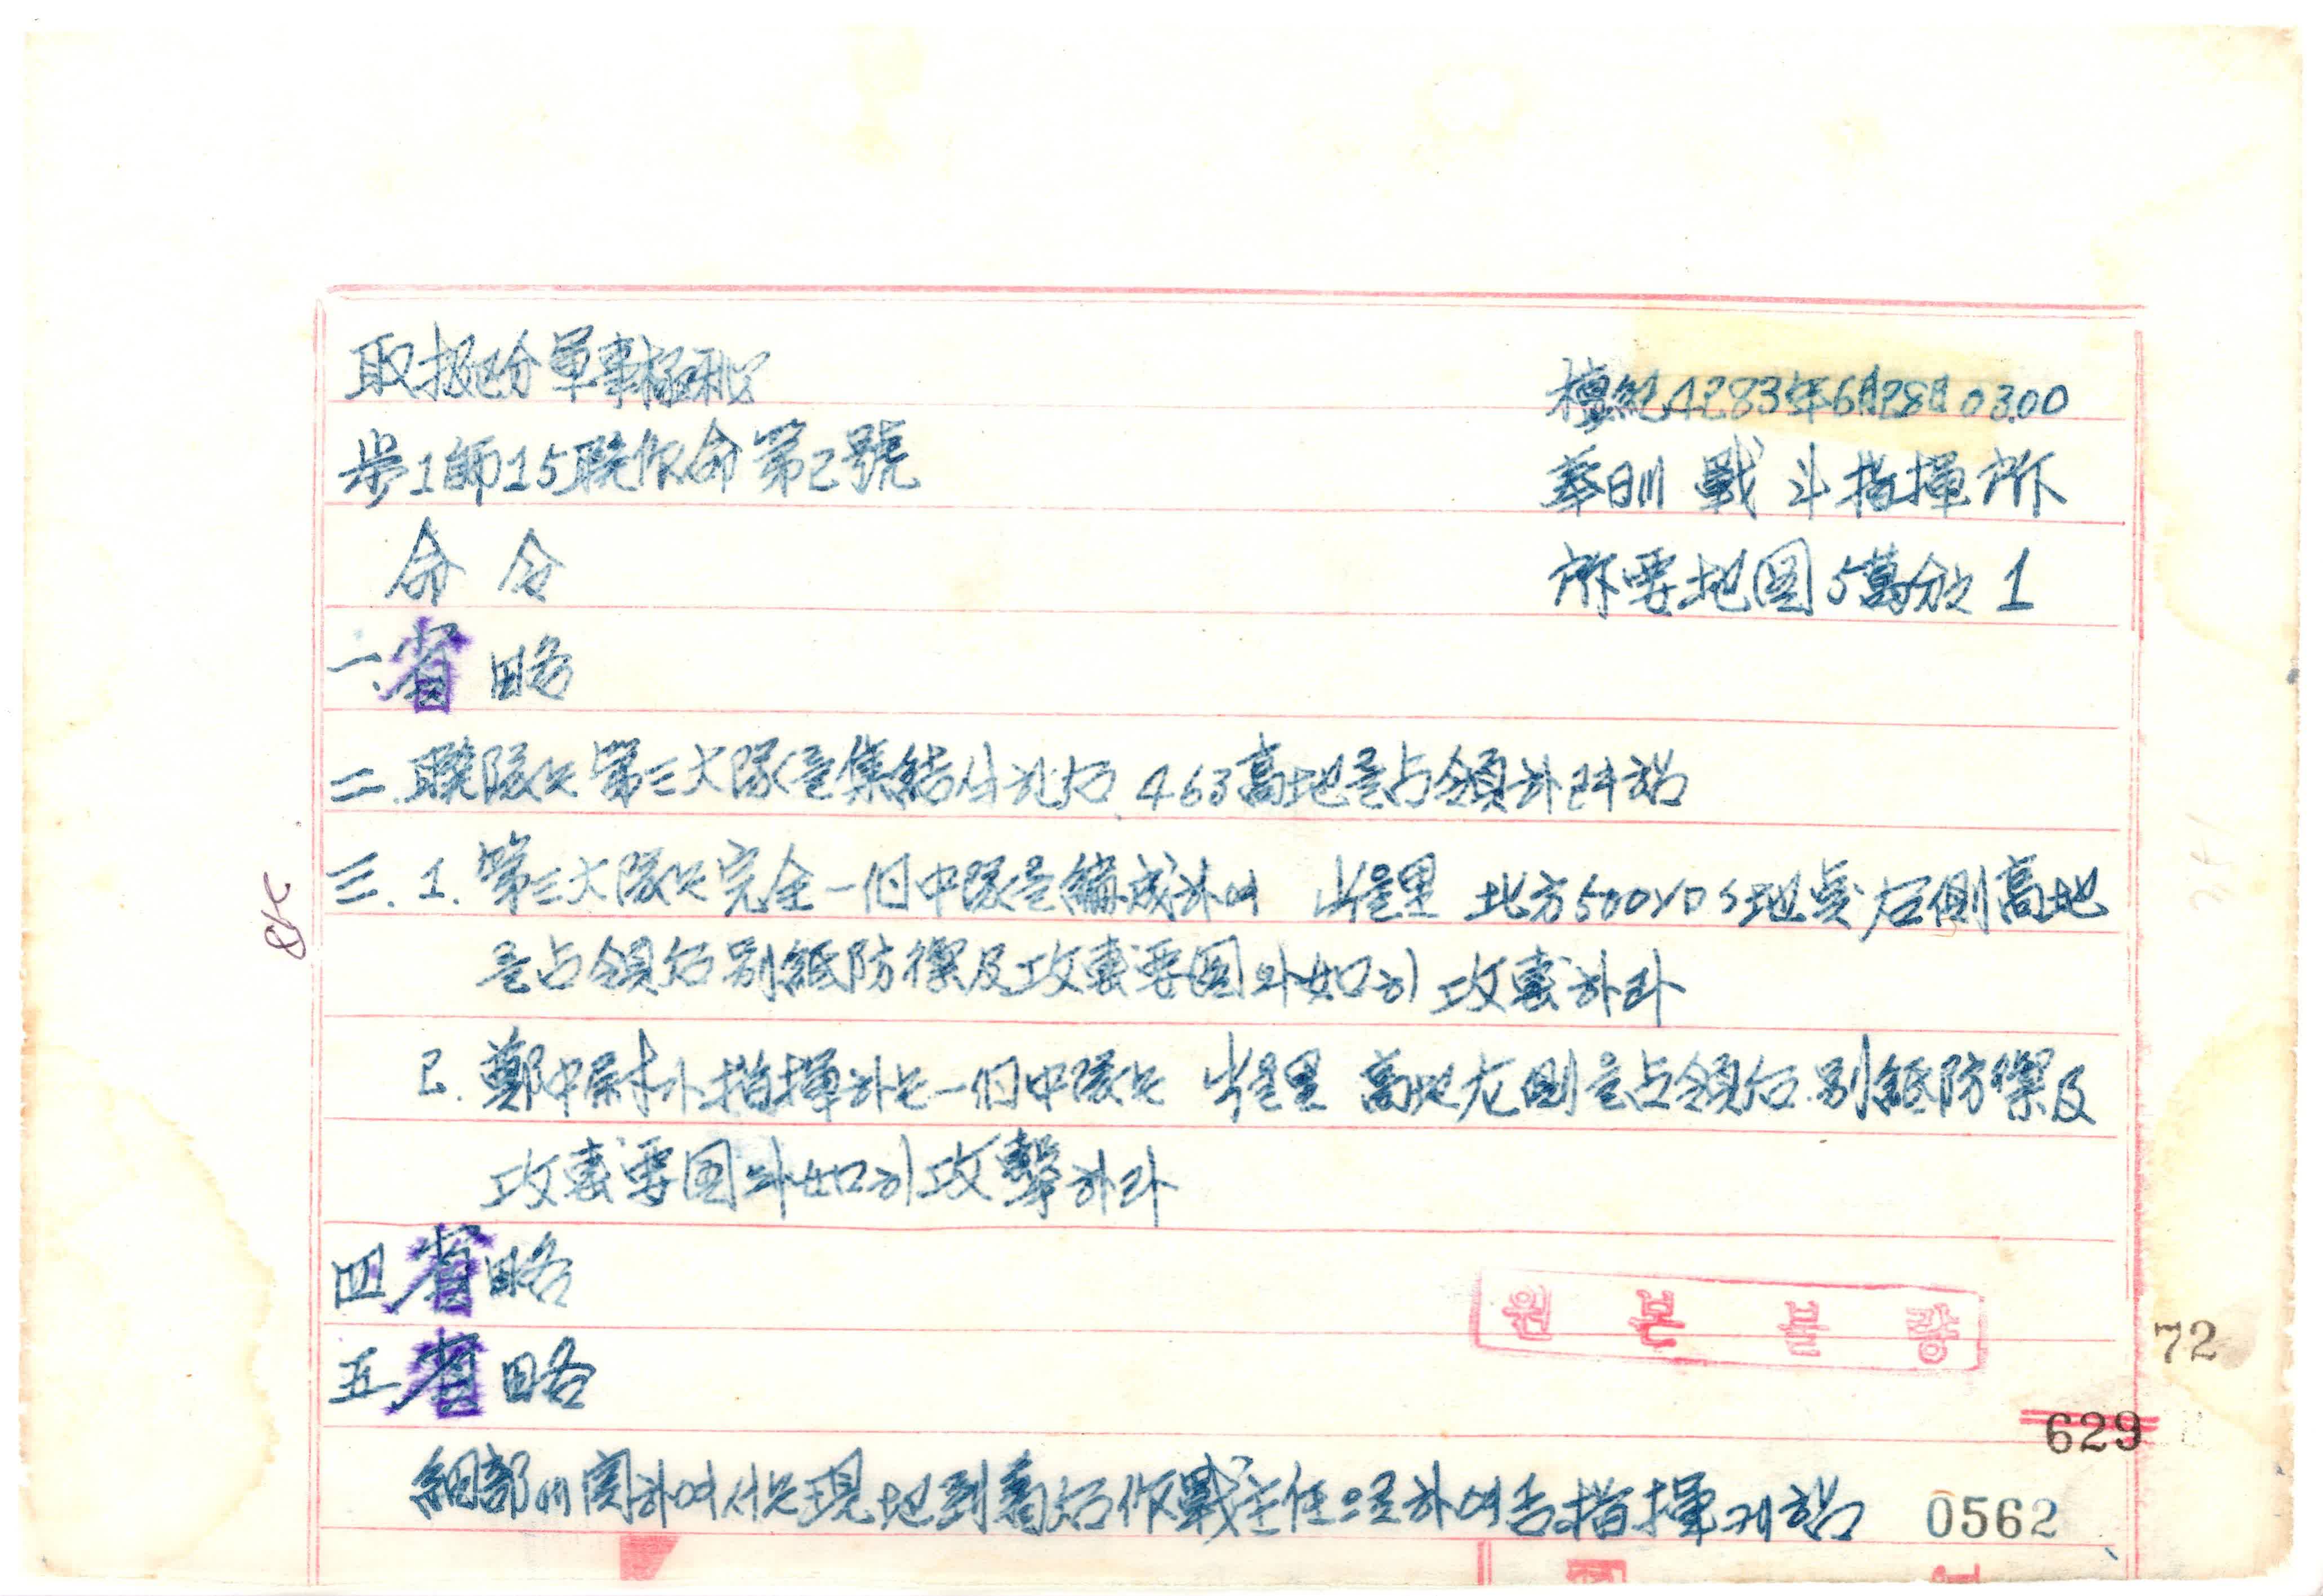 取扱區分 軍事極秘
檀紀4283年6月28日 0300
步1師15聯作命第2號
奉日川 戰斗指揮所
命 令
所要地図5萬分之1
一. 省略
二. 聯隊은 第三大隊을 集結식혀 463高地을 占領하려 함
三. 1. 第三大隊은 完全一個中隊을 編成하여 北方500YDS地点右側高地
을 占領后 別紙防禦及攻擊要図와 如히 攻擊하라
2. 鄭中尉가 指揮하는 一個中隊은 高地左側을 占領后 別紙防禦及
攻擊要図와 如히 攻擊하라
四 省略
五 省略
細部에 関하여서는 現地到着后 作戰主任으로 하여금 指揮케 함
원본는량
72
629
0562